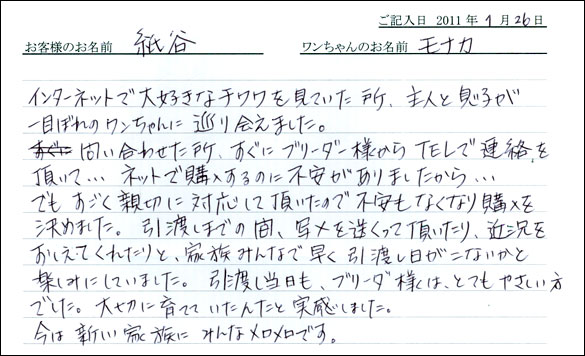 ご記入日 2011年9月26日
お客様のお名前 紙谷 ワンちゃんのお名前 モナカ
インターネットで大好きなチワワを見ていた所、主人と息子が
一目ぼれのワンちゃんに巡り会えました。
問い合わせた所、すぐにブリーダー様からTELで連絡を
頂いて… ネットで購入するのに不安がありましたから…
でもすごく親切に対応して頂いたので不安もなくなり購入を
決めました。引渡しまでの間、写メを送くって頂いたり、近況を
おしえてくれたりと、家族みんなで早く引渡し日がこないかと
楽しみにしていました。引渡し当日も、ブリーダ様は、とてもやさしい方
でした。大切に育てていたんだと実感しました。
今は新しい家族にみんなメロメロです。